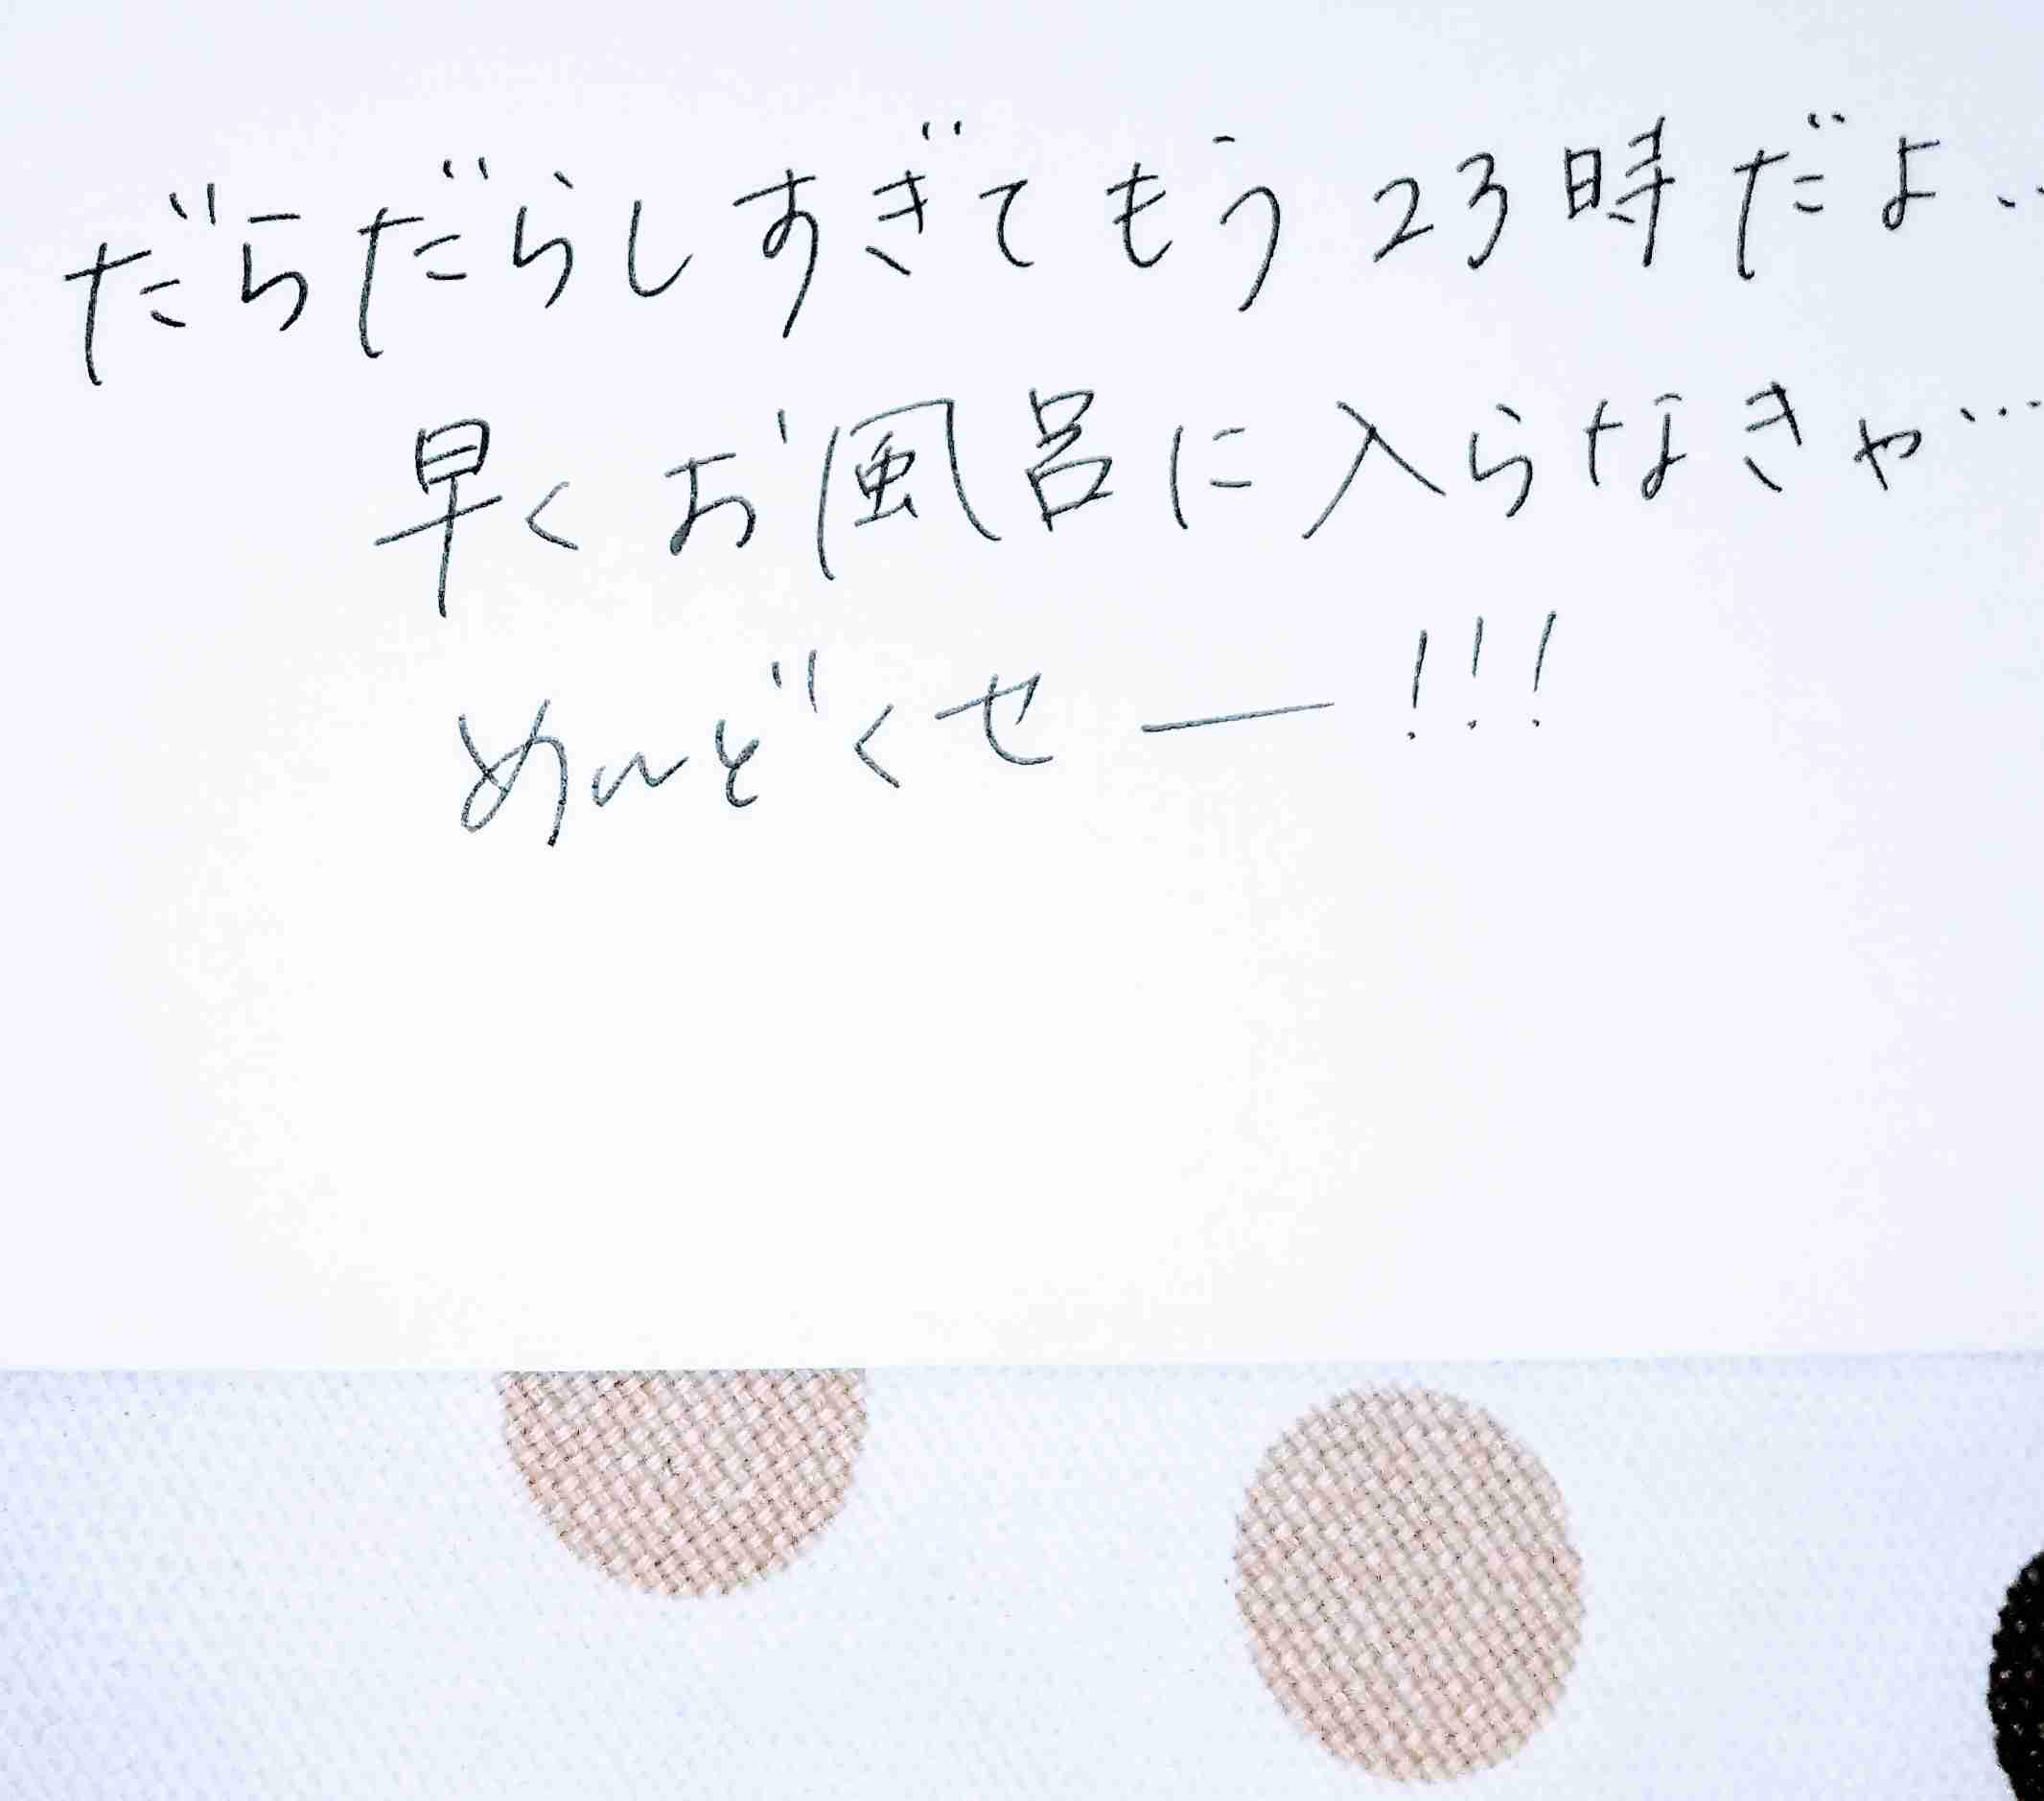 だらだらしすぎてもう23時だよ‥
早くお風呂に入らなきゃ…
めんどくせー!!!